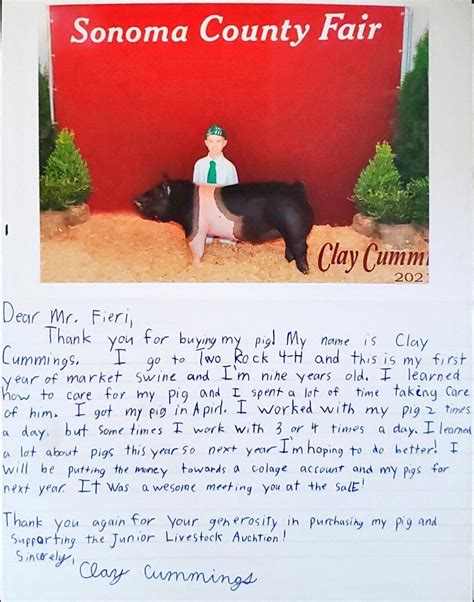 Sonoma County Fair
Clay Cumm
202
Dear Mr. Fieri,
Thank you for buying my pig! My name is Clay
Cummings. I go to Two Rock 4-H and this is my first
year of market swine and I'm nine years old. I learned
how to care for my pig and I spent a lot of time taking care
of him. I got my pig in Apirl. I worked with my pig 2 times
a day. but Some times I work with 3 or 4 times a day. I learned
a lot about pigs this year so next year I'm hoping to do better! I
will be putting the money towards a colage account and my pigs for
next year. IT was awesome meeting you at the salE!
Thank you again for your generosity in purchasing my pig and
supporting the Junior Livestock Auchtion!
Sincerely,
Clay Cummings